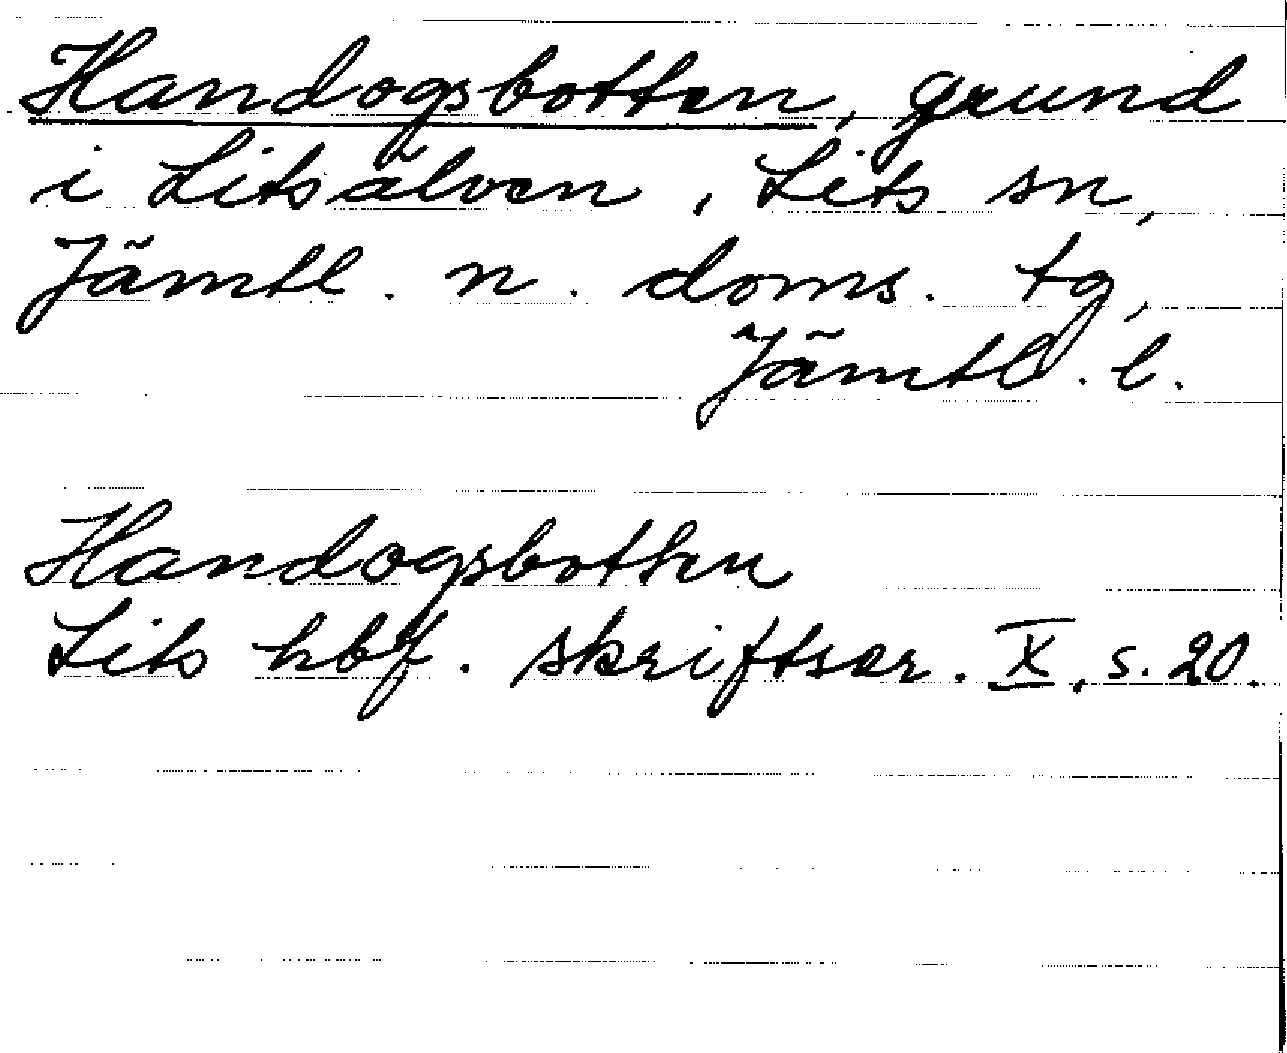 Handogsbotten, grund
i Litsälven, Lits sn,
Jämtl. n. doms. tg,
Jämtl. l.
Handogsbotten
Lits hbf. skriftser. X, s. 20.